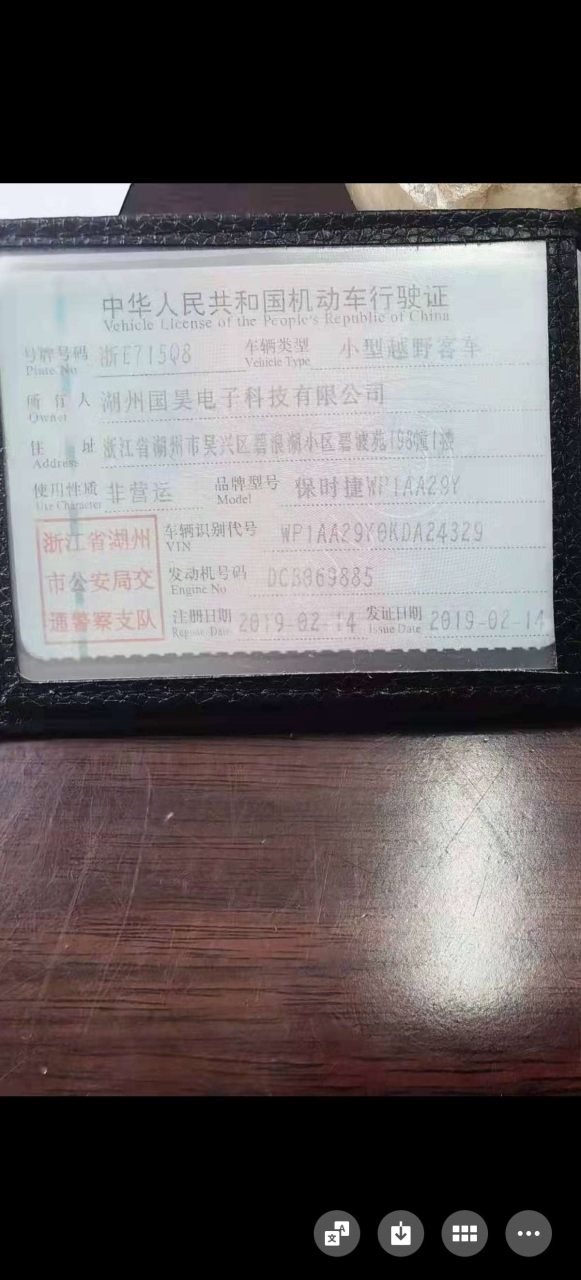 中华人民共和国机动车行驶证
Vehicle License of the People's Republic of China
号牌号码 浙E715Q8 车辆类型 小型越野客车
Plate No Vehicle Type
所有人 湖州国昊电子科技有限公司
Owner
住址 浙江省湖州市吴兴区碧浪湖小区碧波苑198幢1楼
Address
使用性质 非营运 品牌型号 保时捷WP1AA29Y
Use Character Model
浙江省湖州
市公安局交
通警察支队
车辆识别代号 WP1AA29Y0KDA24329
VIN
发动机号码 DCB069885
Engine No
注册日期 2019-02-14 发证日期 2019-02-14
Register Date Issue Date